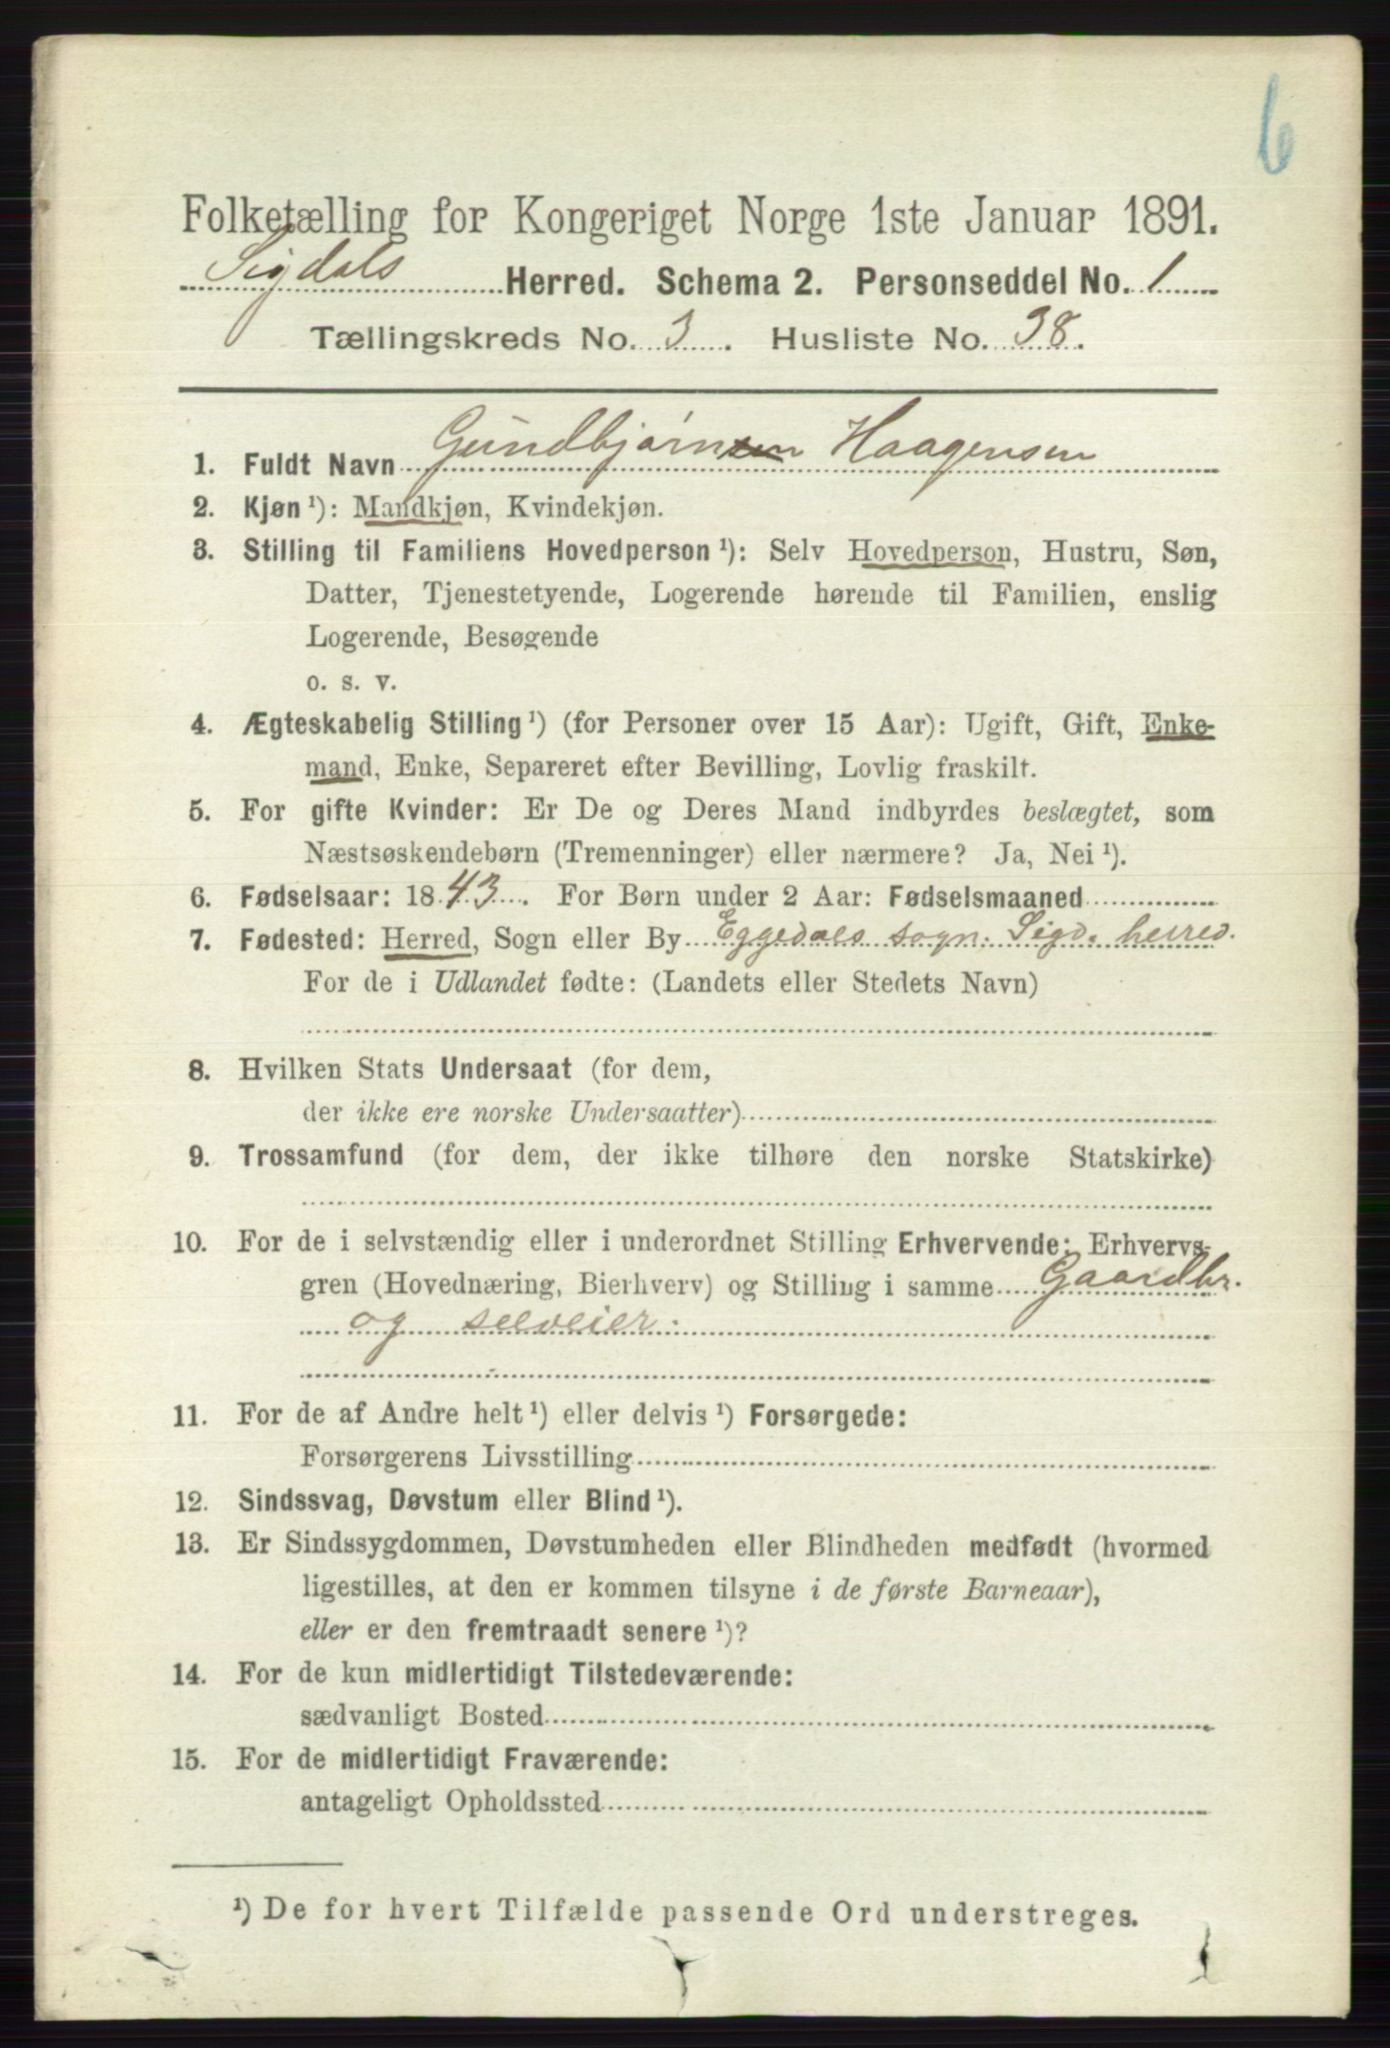 6
Folketælling for Kongeriget Norge 1ste Januar 1891.
Sigdals Herred. Schema 2. Personseddel No. 1
Tællingskreds No. 3. Husliste No. 38.
1. Fuldt Navn Gundbjørn Haagensen
2. Kjøn ¹): Mandkjøn, Kvindekjøn.
3. Stilling til Familiens Hovedperson ¹): Selv Hovedperson, Hustru, Søn,
Datter, Tjenestetyende, Logerende hørende til Familien, enslig
Logerende, Besøgende
o. s. v.
4. Ægteskabelig Stilling ¹) (for Personer over 15 Aar): Ugift, Gift, Enke-
mand, Enke, Separeret efter Bevilling, Lovlig fraskilt.
5. For gifte Kvinder: Er De og Deres Mand indbyrdes beslægtet, som
Næstsøskendebørn (Tremenninger) eller nærmere? Ja, Nei ¹).
6. Fødselsaar: 1843. For Børn under 2 Aar: Fødselsmaaned
7. Fødested: Herred, Sogn eller By Eggedals sogn. Sigd. herred.
For de i Udlandet fødte: (Landets eller Stedets Navn)
8. Hvilken Stats Undersaat (for dem,
der ikke ere norske Undersaatter)
9. Trossamfund (for dem, der ikke tilhøre den norske Statskirke)
10. For de i selvstændig eller i underordnet Stilling Erhvervende: Erhvervs-
gren (Hovednæring, Bierhverv) og Stilling i samme Gaardbr.
og selveier.
11. For de af Andre helt ¹) eller delvis ¹) Forsørgede:
Forsørgerens Livsstilling
12. Sindssvag, Døvstum eller Blind ¹).
13. Er Sindssygdommen, Døvstumheden eller Blindheden medfødt (hvormed
ligestilles, at den er kommen tilsyne i de første Barneaar),
eller er den fremtraadt senere ¹)?
14. For de kun midlertidigt Tilstedeværende:
sædvanligt Bosted
15. For de midlertidigt Fraværende:
antageligt Opholdssted
¹) De for hvert Tilfælde passende Ord understreges.